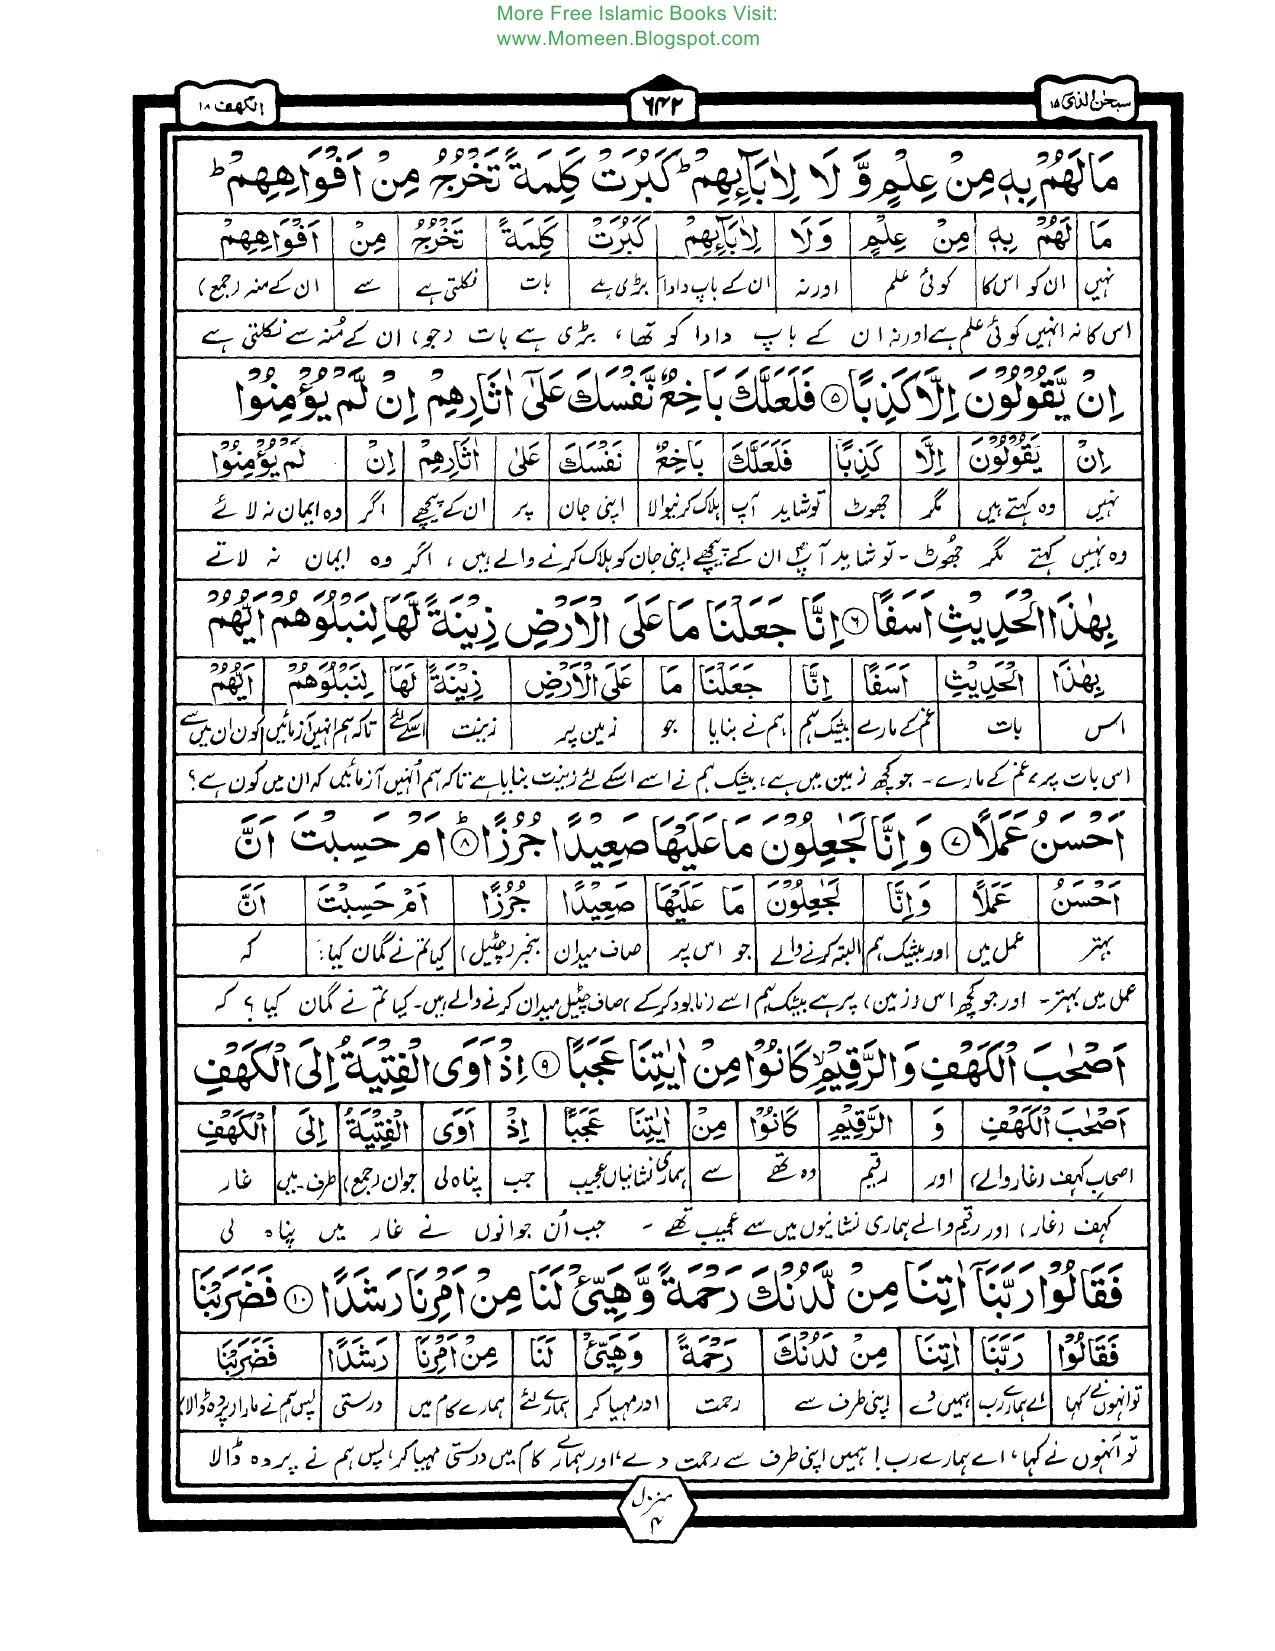 More Free Islamic Books Visit:
www.Momeen.Blogspot.com
سبحٰن الذی ۱۵ ۶۴۲ الکھف ۱۸
مَا لَهُمْ بِهٖ مِنْ عِلْمٍ وَّ لَا لِاٰبَآئِهِمْ ؕ كَبُرَتْ كَلِمَةً تَخْرُجُ مِنْ اَفْوَاهِهِمْ ؕ
مَا لَهُمْ بِهٖ مِنْ عِلْمٍ وَلَا لِاٰبَآئِهِمْ كَبُرَتْ كَلِمَةً تَخْرُجُ مِنْ اَفْوَاهِهِمْ
نہیں ان کو اس کا کوئی علم اور نہ ان کے باپ دادا بڑی ہے بات نکلتی ہے سے ان کے منہ (جمع)
اس کا نہ انہیں کوئی علم ہے اور نہ ان کے باپ دادا کو تھا، بڑی ہے بات (جو) ان کے مُنہ سے نکلتی ہے
اِنْ يَّقُوْلُوْنَ اِلَّا كَذِبًا ۵ فَلَعَلَّكَ بَاخِعٌ نَّفْسَكَ عَلٰٓى اٰثَارِهِمْ اِنْ لَّمْ يُؤْمِنُوْا
اِنْ يَقُوْلُوْنَ اِلَّا كَذِبًا فَلَعَلَّكَ بَاخِعٌ نَفْسَكَ عَلٰى اٰثَارِهِمْ اِنْ لَمْ يُؤْمِنُوْا
نہیں وہ کہتے ہیں مگر جھوٹ تو شاید آپ ہلاک کرنیوالا اپنی جان پر ان کے پیچھے اگر وہ ایمان نہ لائے
وہ نہیں کہتے مگر جھُوٹ - تو شاید آپؐ ان کے پیچھے اپنی جان کو ہلاک کرنے والے ہیں ، اگر وہ ایمان نہ لاتے
بِهٰذَا الْحَدِيْثِ اَسَفًا ۶ اِنَّا جَعَلْنَا مَا عَلَى الْاَرْضِ زِيْنَةً لَّهَا لِنَبْلُوَهُمْ اَيُّهُمْ
بِهٰذَا الْحَدِيْثِ اَسَفًا اِنَّا جَعَلْنَا مَا عَلَى الْاَرْضِ زِيْنَةً لَهَا لِنَبْلُوَهُمْ اَيُّهُمْ
اس بات غم کے مارے بیشک ہم ہم نے بنایا جو زمین پر زینت اسکے لئے تاکہ ہم انہیں آزمائیں کون ان میں سے
اس بات پر، غم کے مارے - جو کچھ زمین میں ہے، بیشک ہم نے اسے اسکے لئے زینت بنایا ہے تاکہ ہم اُنہیں آزمائیں کہ ان میں کون ہے؟
اَحْسَنُ عَمَلًا ۷ وَ اِنَّا لَجٰعِلُوْنَ مَا عَلَيْهَا صَعِيْدًا جُرُزًا ؕ ۸ اَمْ حَسِبْتَ اَنَّ
اَحْسَنُ عَمَلًا وَاِنَّا لَجٰعِلُوْنَ مَا عَلَيْهَا صَعِيْدًا جُرُزًا اَمْ حَسِبْتَ اَنَّ
بہتر عمل میں اور بیشک ہم البتہ کرنے والے جو اس پر صاف میدان بنجر (چٹیل) کیا تم نے گمان کیا؟ کہ
عمل میں بہتر - اور جو کچھ اس (زمین) پر ہے بیشک ہم اسے (نابود کرکے) صاف چٹیل میدان کرنے والے ہیں - کیا تم نے گمان کیا ؟ کہ
اَصْحٰبَ الْكَهْفِ وَالرَّقِيْمِ ۙ كَانُوْا مِنْ اٰيٰتِنَا عَجَبًا ۹ اِذْ اَوَى الْفِتْيَةُ اِلَى الْكَهْفِ
اَصْحٰبَ الْكَهْفِ وَ الرَّقِيْمِ كَانُوْا مِنْ اٰيٰتِنَا عَجَبًا اِذْ اَوَى الْفِتْيَةُ اِلَى الْكَهْفِ
اصحاب کہف (غار والے) اور رقیم وہ تھے سے ہماری نشانیاں عجیب جب پناہ لی جوان (جمع) طرف - میں غار
کہف (غار) اور رقیم والے ہماری نشانیوں میں سے عجیب تھے - جب اُن جوانوں نے غار میں پناہ لی
فَقَالُوْا رَبَّنَآ اٰتِنَا مِنْ لَّدُنْكَ رَحْمَةً وَّ هَيِّئْ لَنَا مِنْ اَمْرِنَا رَشَدًا ۱۰ فَضَرَبْنَا
فَقَالُوْا رَبَّنَا اٰتِنَا مِنْ لَدُنْكَ رَحْمَةً وَهَيِّئْ لَنَا مِنْ اَمْرِنَا رَشَدًا فَضَرَبْنَا
تو انہوں نے کہا اے ہمارے رب ہمیں دے اپنی طرف سے رحمت اور مہیا کر ہمارے لئے ہمارے کام میں درستی پس ہم نے مارا (پردہ ڈالا)
تو اُنہوں نے کہا، اے ہمارے رب! ہمیں اپنی طرف سے رحمت دے، اور ہمارے کام میں درستی مہیا کر، پس ہم نے پردہ ڈالا
منزل
۴